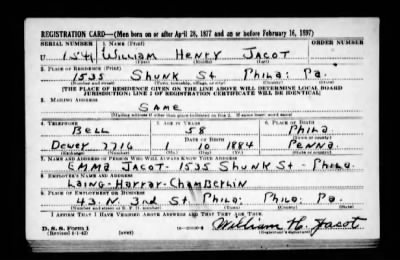 REGISTRATION CARD—(Men born on or after April 28, 1877 and on or before February 16, 1897)
SERIAL NUMBER 1. NAME (Print) ORDER NUMBER
U 1541 WILLIAM HENRY JACOT
(First) (Middle) (Last)
2. PLACE OF RESIDENCE (Print)
1535 SHUNK St PHILA: PA.
(Number and street) (Town, township, village, or city) (County) (State)
[THE PLACE OF RESIDENCE GIVEN ON THE LINE ABOVE WILL DETERMINE LOCAL BOARD
JURISDICTION; LINE 2 OF REGISTRATION CERTIFICATE WILL BE IDENTICAL]
3. MAILING ADDRESS
SAME
[Mailing address if other than place indicated on line 2. If same insert word same]
4. TELEPHONE 5. AGE IN YEARS 6. PLACE OF BIRTH
BELL 58 PHILA
DATE OF BIRTH (Town or county)
DEWEY 7716 1 10 1884 PENNA.
(Exchange) (Number) (Mo.) (Day) (Yr.) (State or country)
7. NAME AND ADDRESS OF PERSON WHO WILL ALWAYS KNOW YOUR ADDRESS
EMMA JACOT-1535 SHUNK St - PHILA.
8. EMPLOYER'S NAME AND ADDRESS
LAING-HARRAR-CHAMBERLIN
9. PLACE OF EMPLOYMENT OR BUSINESS
43. N. 3rd St PHILA: PHILA: PA.
(Number and street or R. F. D. number) (Town) (County) (State)
I AFFIRM THAT I HAVE VERIFIED ABOVE ANSWERS AND THAT THEY ARE TRUE.
D. S. S. Form 1
(Revised 4-1-42) (over) William H. Jacot
(Registrant's signature)